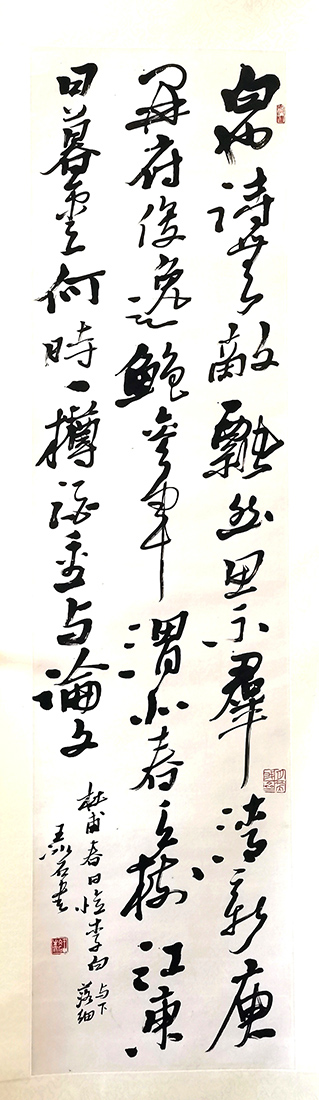 白也詩無敵飄然思不羣清新庾
開府俊逸鮑參軍渭北春天樹江東
日暮雲何時一樽酒重与論文
杜甫春日憶李白
与下落細
王石書